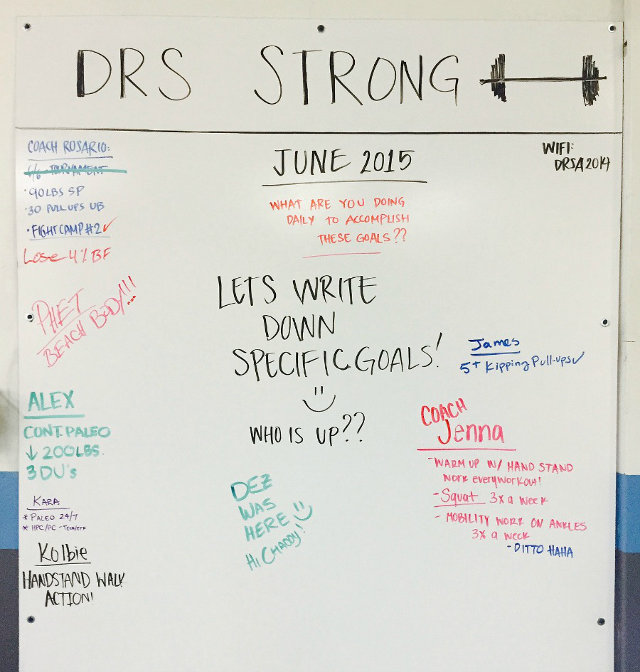 DRS STRONG
COACH ROSARIO:
TOURNAMENT
· 90LBS SP
· 30 PULLUPS UB
· FIGHT CAMP #2 ✓
Lose 4% BF
PHET
BEACH BODY!!!
ALEX
CONT. PALEO
↓ 200LBS.
3 DU's
KARA
* PALEO 24/7
* HPC/PC -
Kolbie
HANDSTAND WALK
ACTION!
JUNE 2015
WHAT ARE YOU DOING
DAILY TO ACCOMPLISH
THESE GOALS??
LETS WRITE
DOWN
SPECIFIC GOALS!
WHO IS UP??
DEZ
WAS
HERE
HI CHADDY!
WIFI:
DRSA2014
James
5+ Kipping Pull-ups ✓
COACH
Jenna
- WARM UP W/ HAND STAND
WORK everyworkout!
- Squat 3x a week
- MOBILITY WORK ON ANKLES
3x a week
- DITTO HAHA